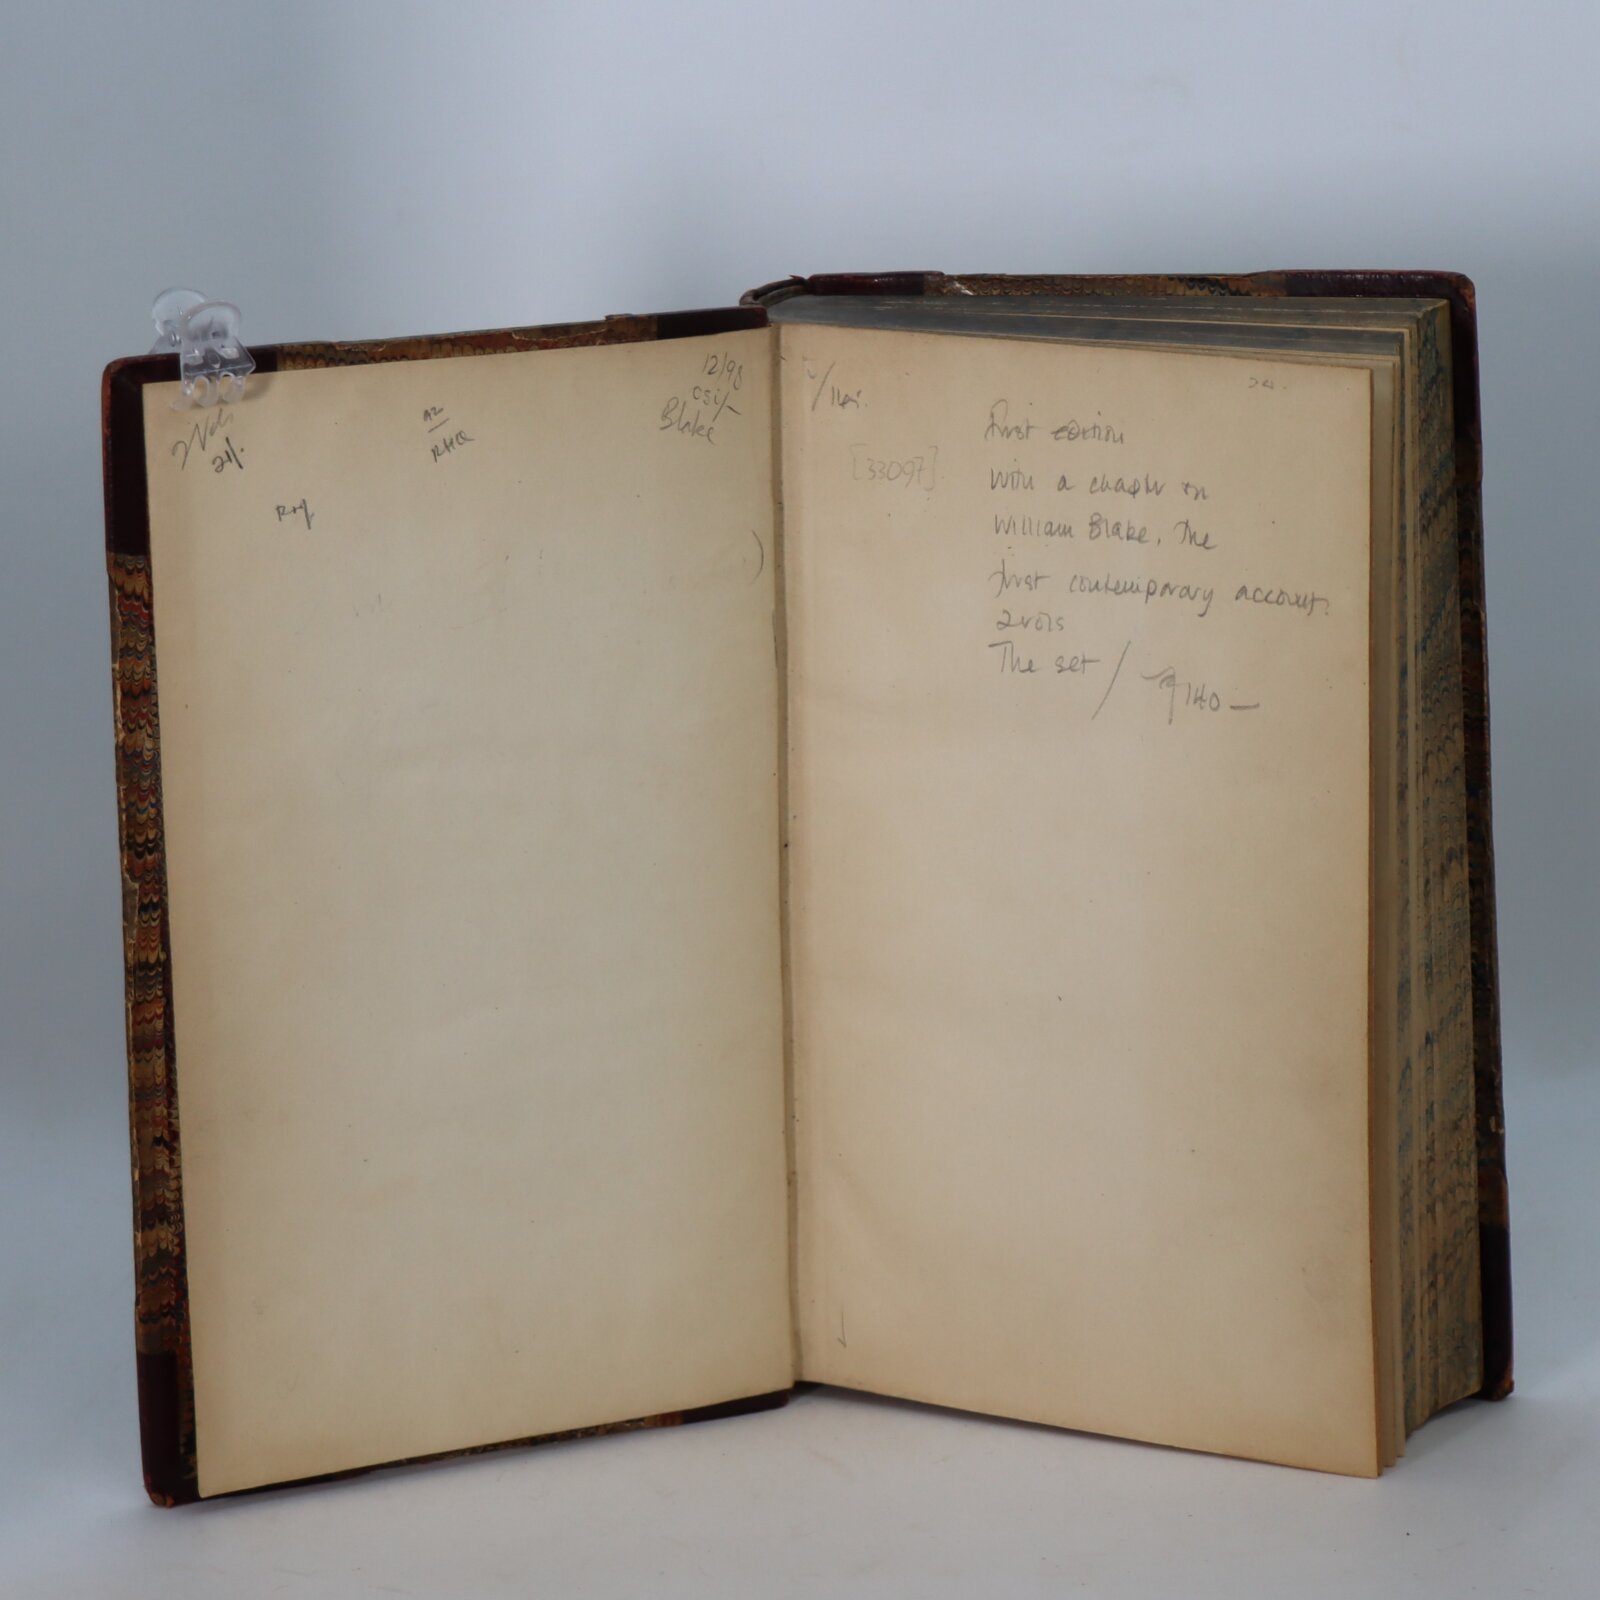 2 Vols
21/-
RHQ
12/98
Blake
[33097]
First edition
with a chapter on
William Blake. The
first contemporary account.
2 vols
The set / 140 —